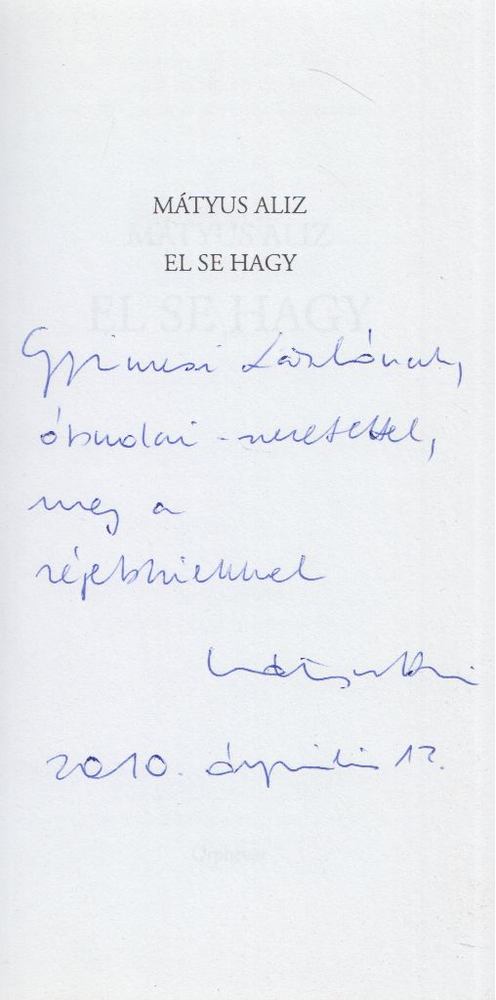 MÁTYUS ALIZ
EL SE HAGY
Gyimesi Lászlónak,
óbudai szeretettel,
meg a
régebbiekkel
Mátyus Aliz
2010. április 12.